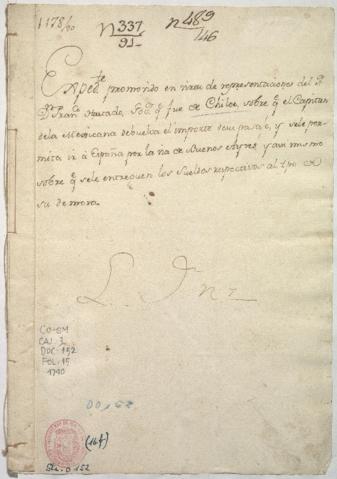 1178/90
n 337/91
n 489/146
Expedte promovido en virtud de representaciones del Sr
Dn Franco Hurtado, Gor q fue de Chiloe, sobre q el Capitan
dela Mexicana debuelva el importe de su pasaje, y sele per-
mita ir à España por la via de Buenos Ayres, y asi mismo
sobre q sele entreguen los sueldos respectivos al tpo de
su demora.
CO-GM
CAJ: 3
DOC: 152
FOL: 15
1790
00152
(16f)
152